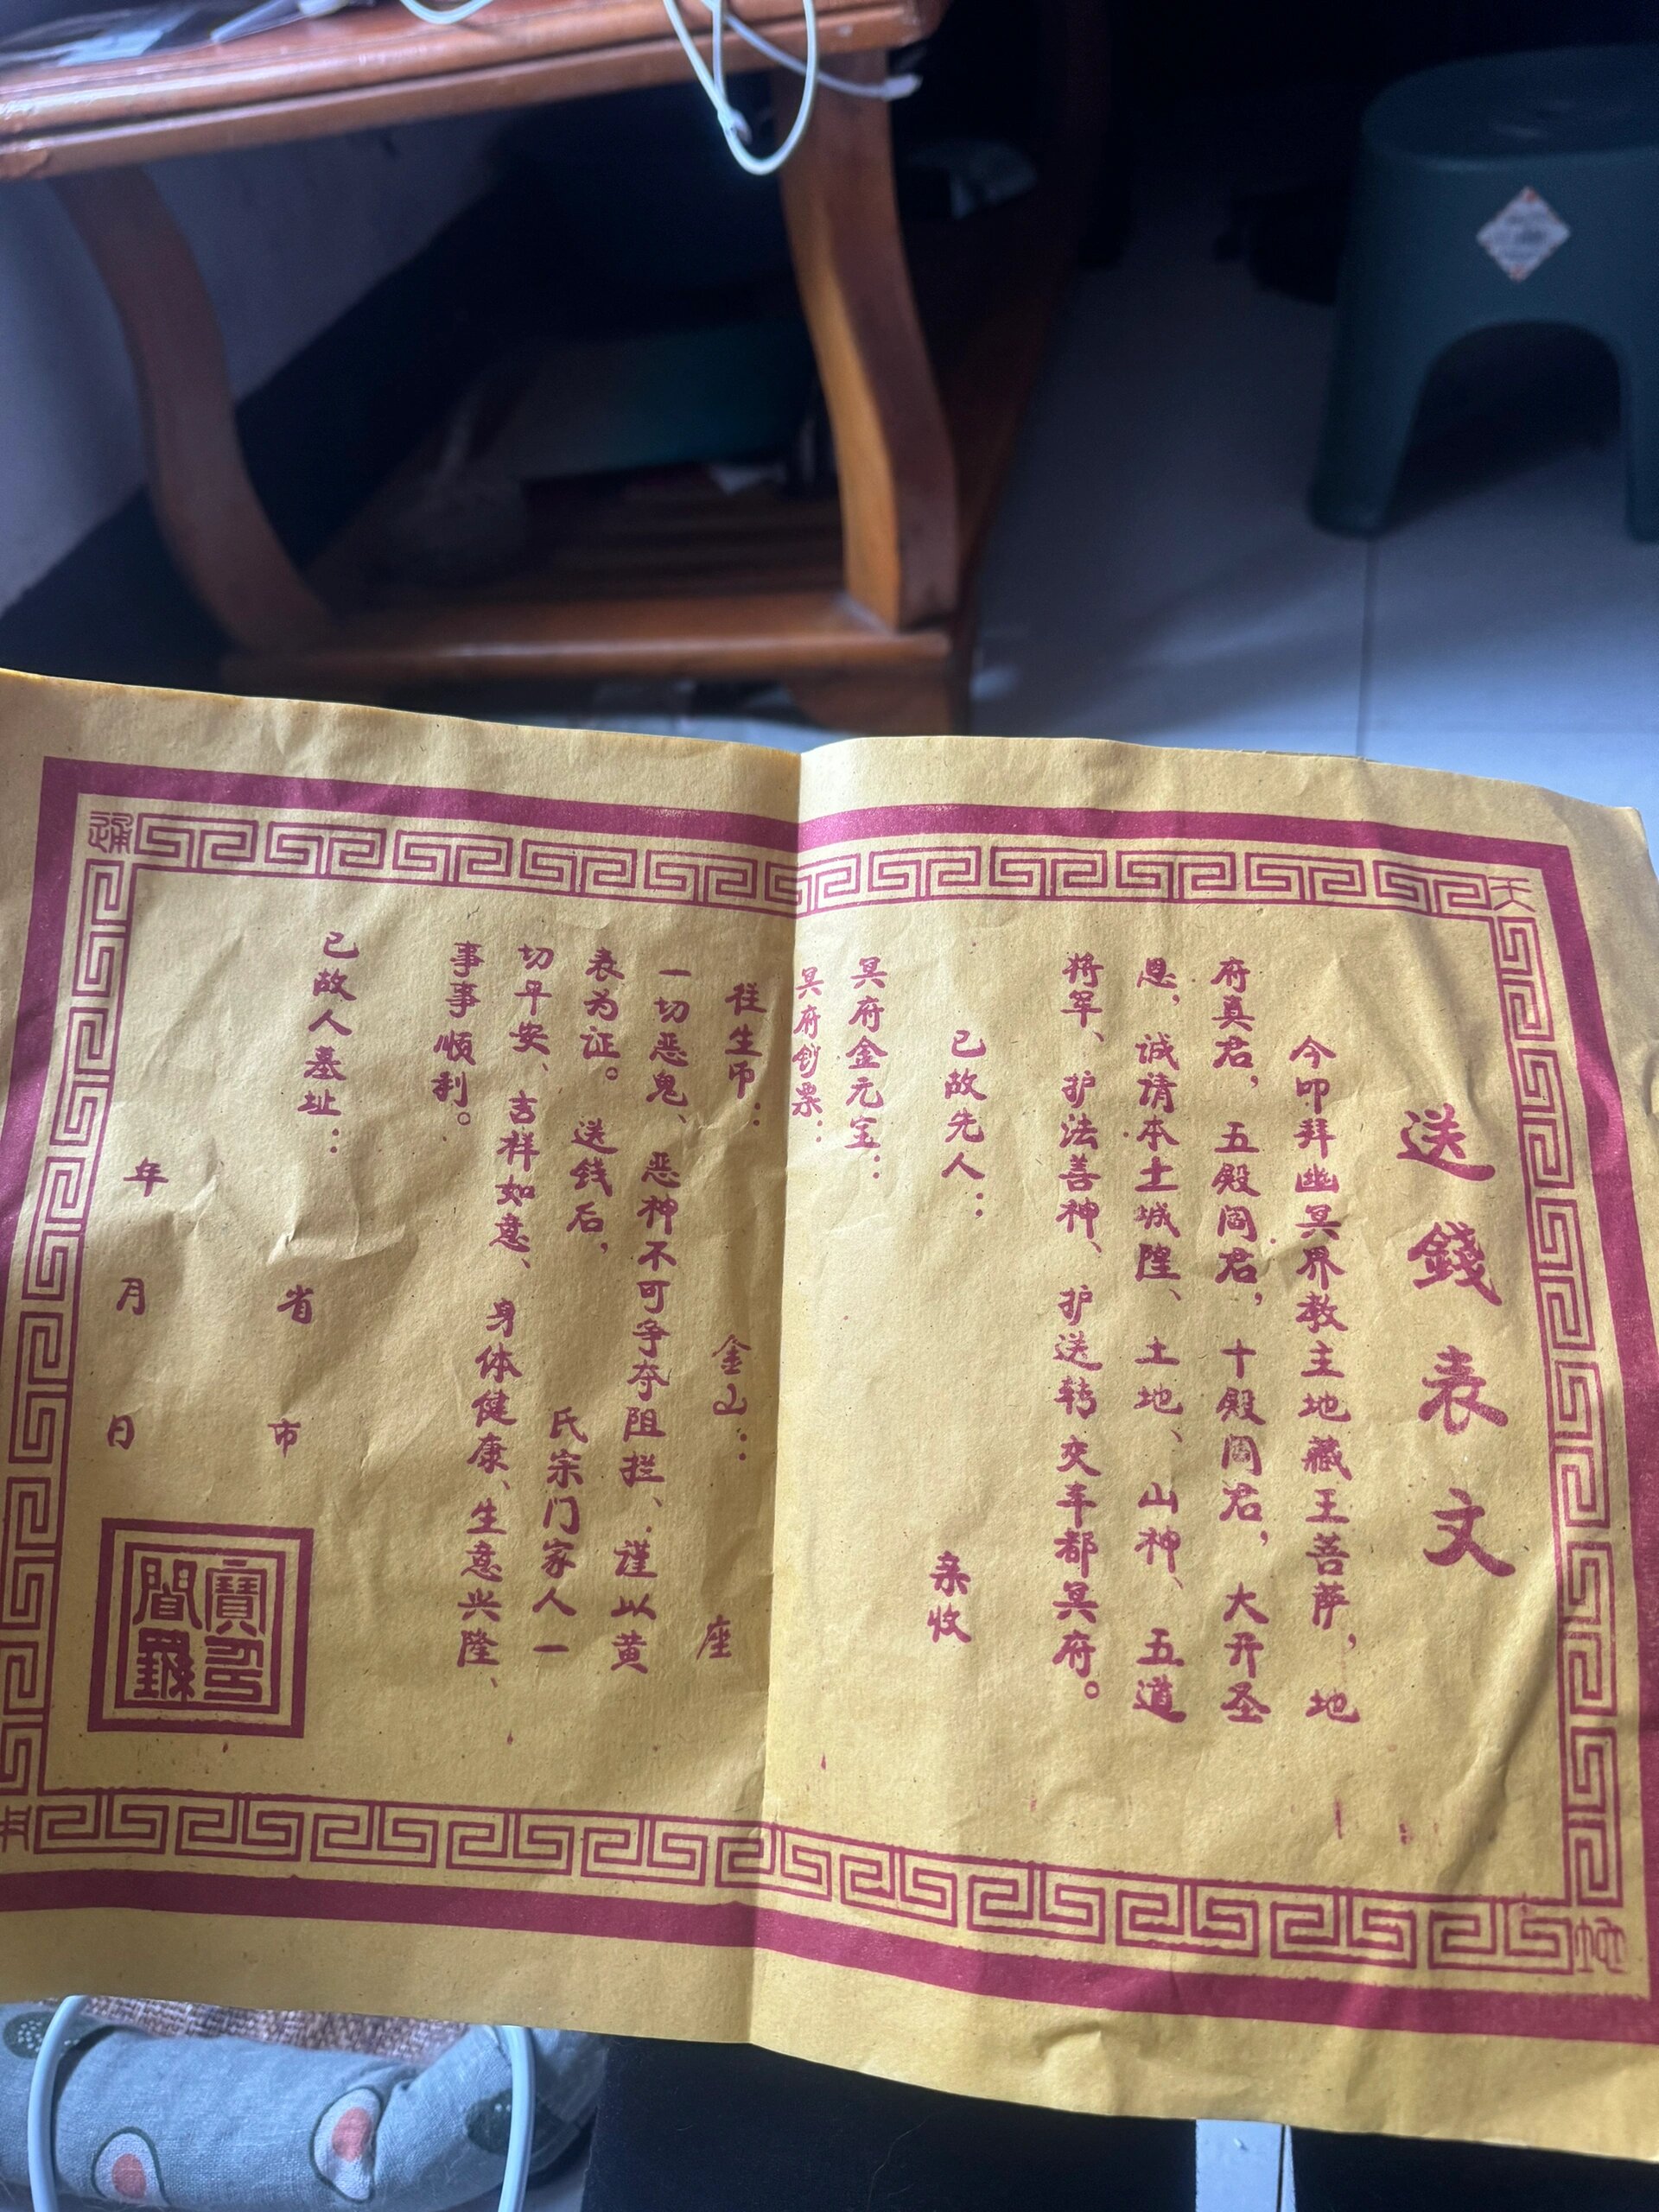 送錢表文
今叩拜幽冥界教主地藏王菩萨，地
府真君，五殿阎君，十殿阎君，大开圣
恩，诚请本土城隍、土地、山神、五道
将军、护法善神、护送转交丰都冥府。
已故先人：亲收
冥府金元宝：
冥府钞票：
往生币：金山：座
一切恶鬼、恶神不可争夺阻拦、谨以黄
表为证。送钱后，氏宗门家人一
切平安、吉祥如意、身体健康、生意兴隆、
事事顺利。
已故人墓址：省市
年月日
天
通